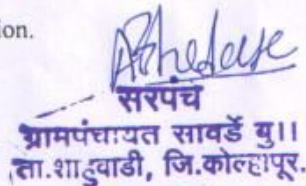 ion.
सरपंच
ग्रामपंचायत सावर्डे बु॥
ता.शाहुवाडी, जि.कोल्हापूर.